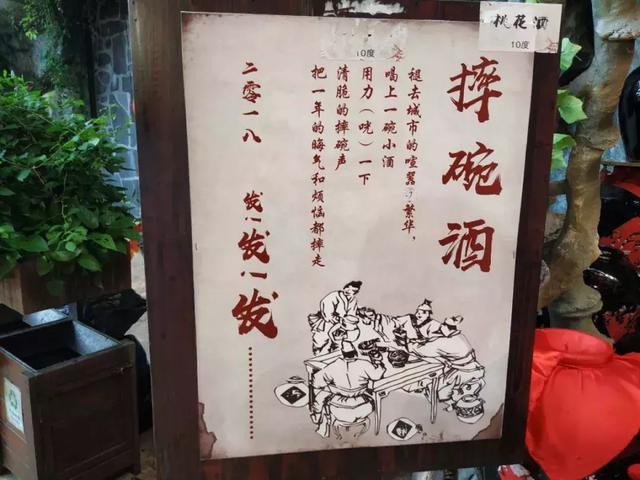 桃花酒
10度
10度
摔碗酒
褪去城市的喧嚣与繁华，
喝上一碗小酒
用力（咣）一下
清脆的摔碗声
把一年的晦气和烦恼都摔走
二零一八 发，发，发…………
酒